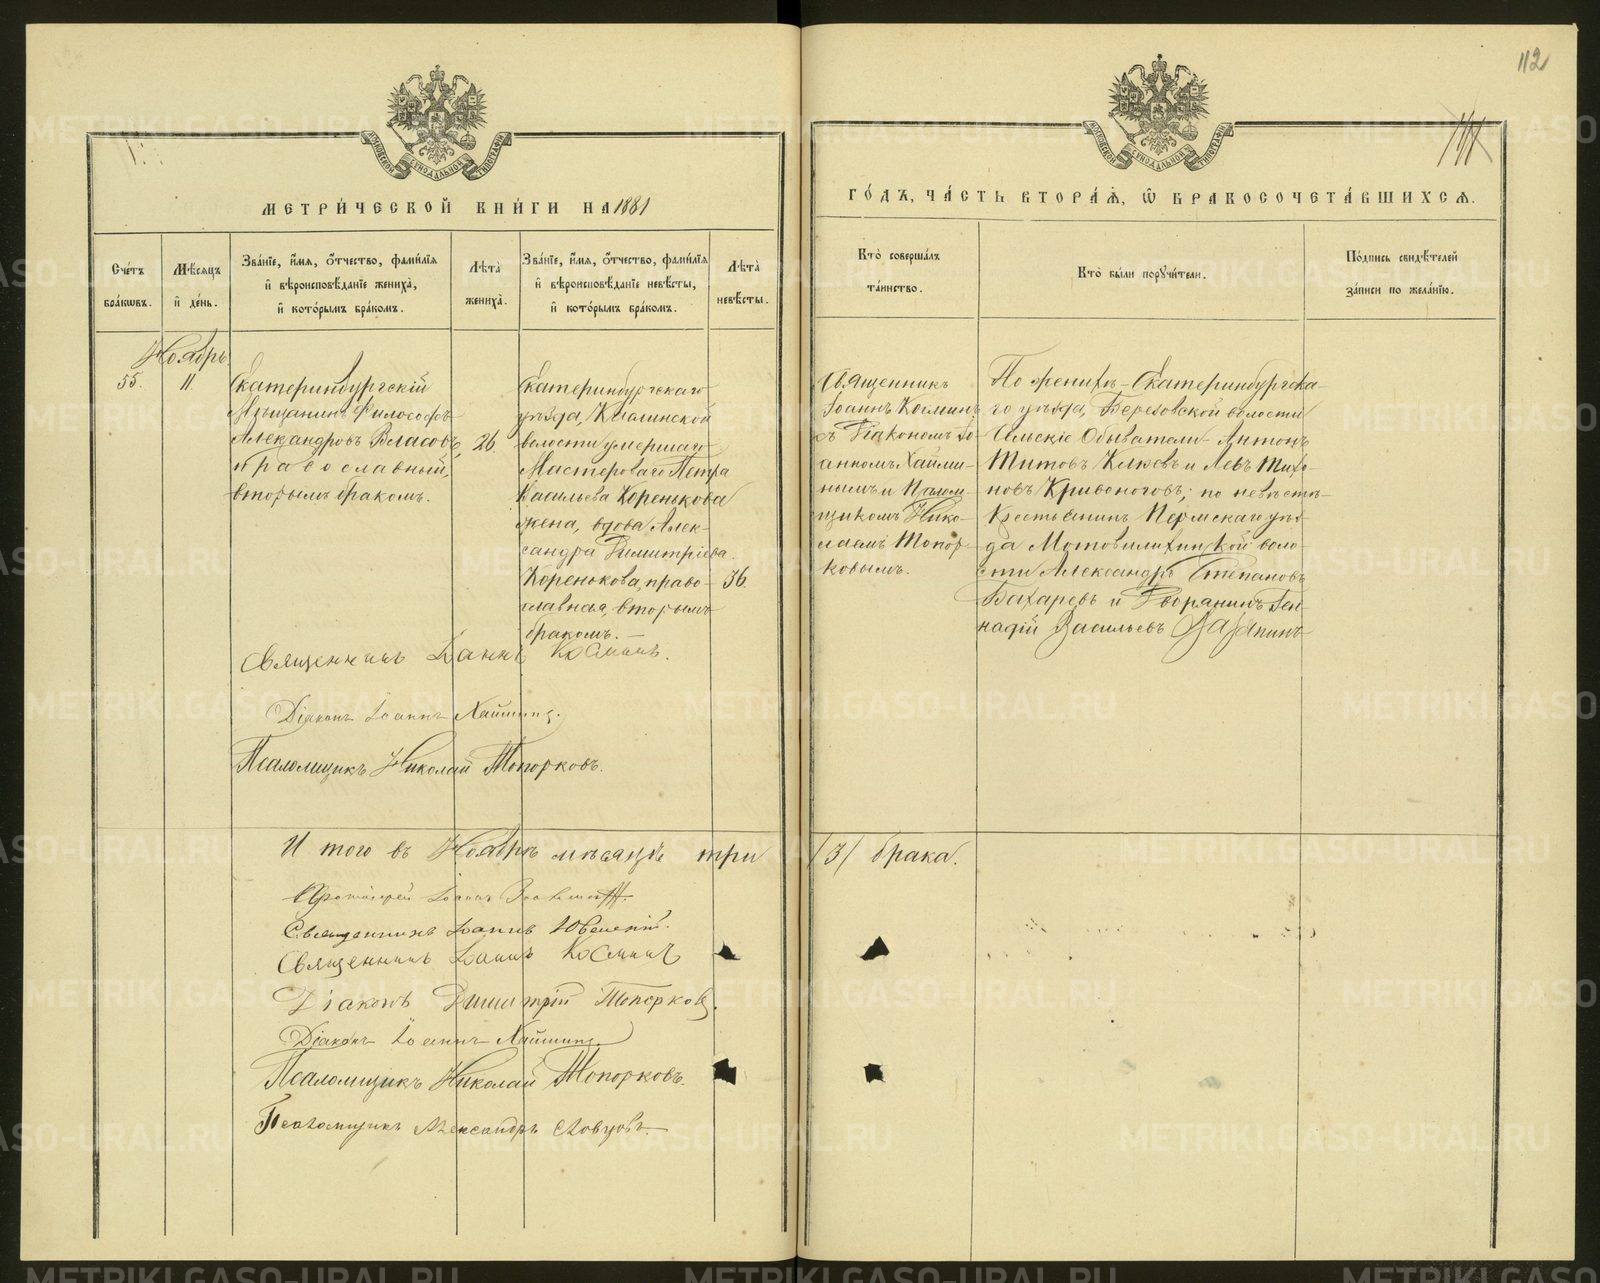 112
МОСКОВСКОЙ СѴНОДАЛЬНОЙ ТИПОГРАФІИ
МОСКОВСКОЙ СѴНОДАЛЬНОЙ ТИПОГРАФІИ
МЕТРИ́ЧЕСКОЙ КНИ́ГИ НА 1881
ГО́ДЪ, ЧА́СТЬ ВТОРА́Я, Ѿ БРАКОСОЧЕТА́ВШИХСЯ.
Сче́тъ
бра́кѡвъ.
Мѣ́сяцъ
и҆ де́нь.
Зва́нїе, и҆́мя, о҆́тчество, фами́лїя
и҆ вѣроисповѣ́данїе жениха̀,
и҆ кото́рымъ бра́комъ.
Лѣ́та̀
жениха̀.
Зва́нїе, и҆́мя, о҆́тчество, фами́лїя
и҆ вѣроисповѣ́данїе невѣ́сты,
и҆ кото́рымъ бра́комъ.
Лѣ́та̀
невѣ́сты.
Кто̀ соверша́лъ
та́инство.
Кто̀ бы́ли порꙋчи́тели.
По́дпись свидѣ́телей
за́писи по жела́нїю.
Ноябрь
55.
11.
Екатеринбургскій
Мѣщанинъ Философъ
Александровъ Власовъ,
православный,
вторымъ бракомъ.
26.
Екатеринбургскаго
уѣзда, Каслинской
волости умершаго
Мастероваго Петра
Васильева Коренькова
жена, вдова Алек-
сандра Димитріева
Коренькова, право-
славная, вторымъ
бракомъ. —
36.
Священникъ
Іоаннъ Косминъ
съ Діакономъ Іо-
анномъ Хайми-
нымъ и Псалом-
щикомъ Нико-
лаемъ Топор-
ковымъ.
По женихѣ – Екатеринбургска-
го уѣзда, Березовской волости
Сельскіе Обыватели – Антонъ
Титовъ Клюевъ и Левъ Тихо-
новъ Кривоноговъ; по невѣстѣ –
Крестьянинъ Пермскаго уѣз-
да Мотовилихинской воло-
сти Александръ Степановъ
Бахаревъ и Дворянинъ Ген-
надій Васильевъ
Священникъ Іоаннъ Косминъ.
Діаконъ Іоаннъ Хайминъ.
Псаломщикъ Николай Топорковъ.
Итого въ Ноябрѣ мѣсяцѣ три /3/ брака.
Протоіерей Іоаннъ
Священникъ Іоаннъ
Священникъ Іоаннъ Косминъ
Діаконъ Димитрій Топорковъ.
Діаконъ Іоаннъ Хайминъ.
Псаломщикъ Николай Топорковъ.
Псаломщикъ Александръ Словцовъ.
METRIKI.GASO-URAL.RU